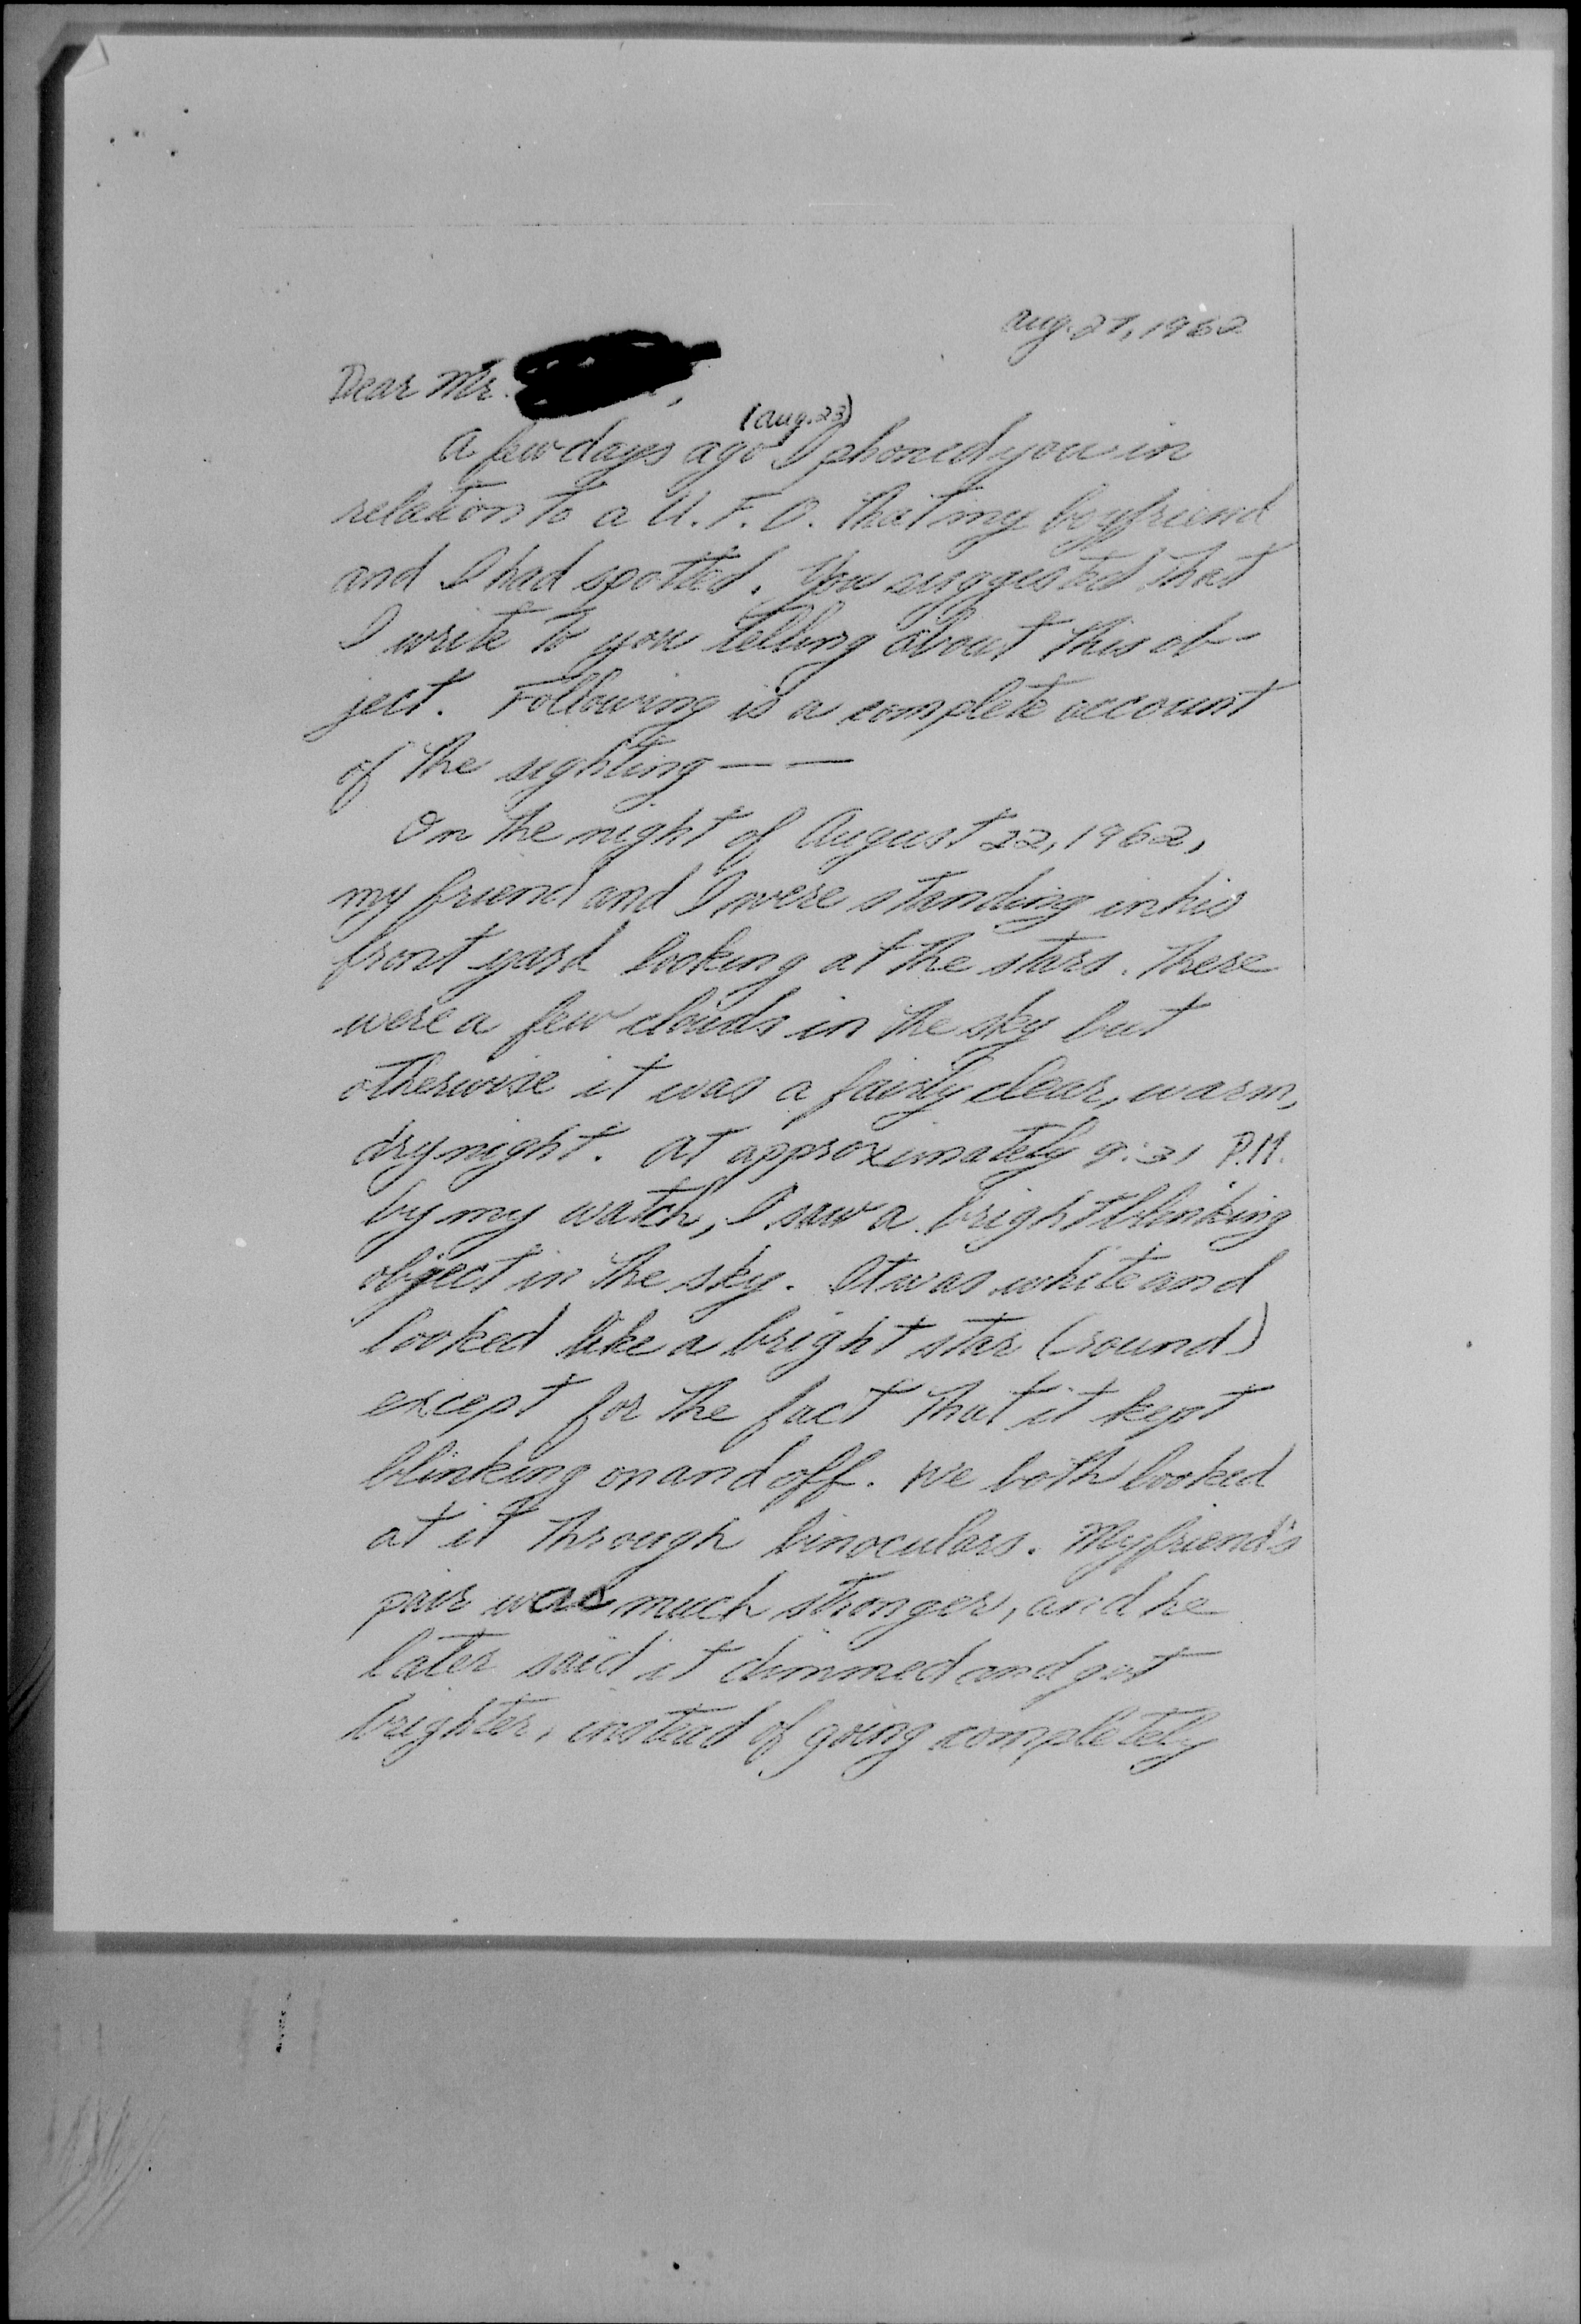 Aug. 27, 1962
Dear Mr.
(Aug. 23)
A few days ago I phoned you in
relation to a U.F.O. that my boyfriend
and I had spotted. You suggested that
I write to you telling about this ob-
ject. Following is a complete account
of the sighting — —
On the night of August 22, 1962,
my friend and I were standing in his
front yard looking at the stars. There
were a few clouds in the sky but
otherwise it was a fairly clear, warm,
dry night. At approximately 9:31 P.M.
by my watch, I saw a bright blinking
object in the sky. It was white and
looked like a bright star (round)
except for the fact that it kept
blinking on and off. We both looked
at it through binoculars. My friend's
pair was much stronger, and he
later said it dimmed and got
brighter, instead of going completely